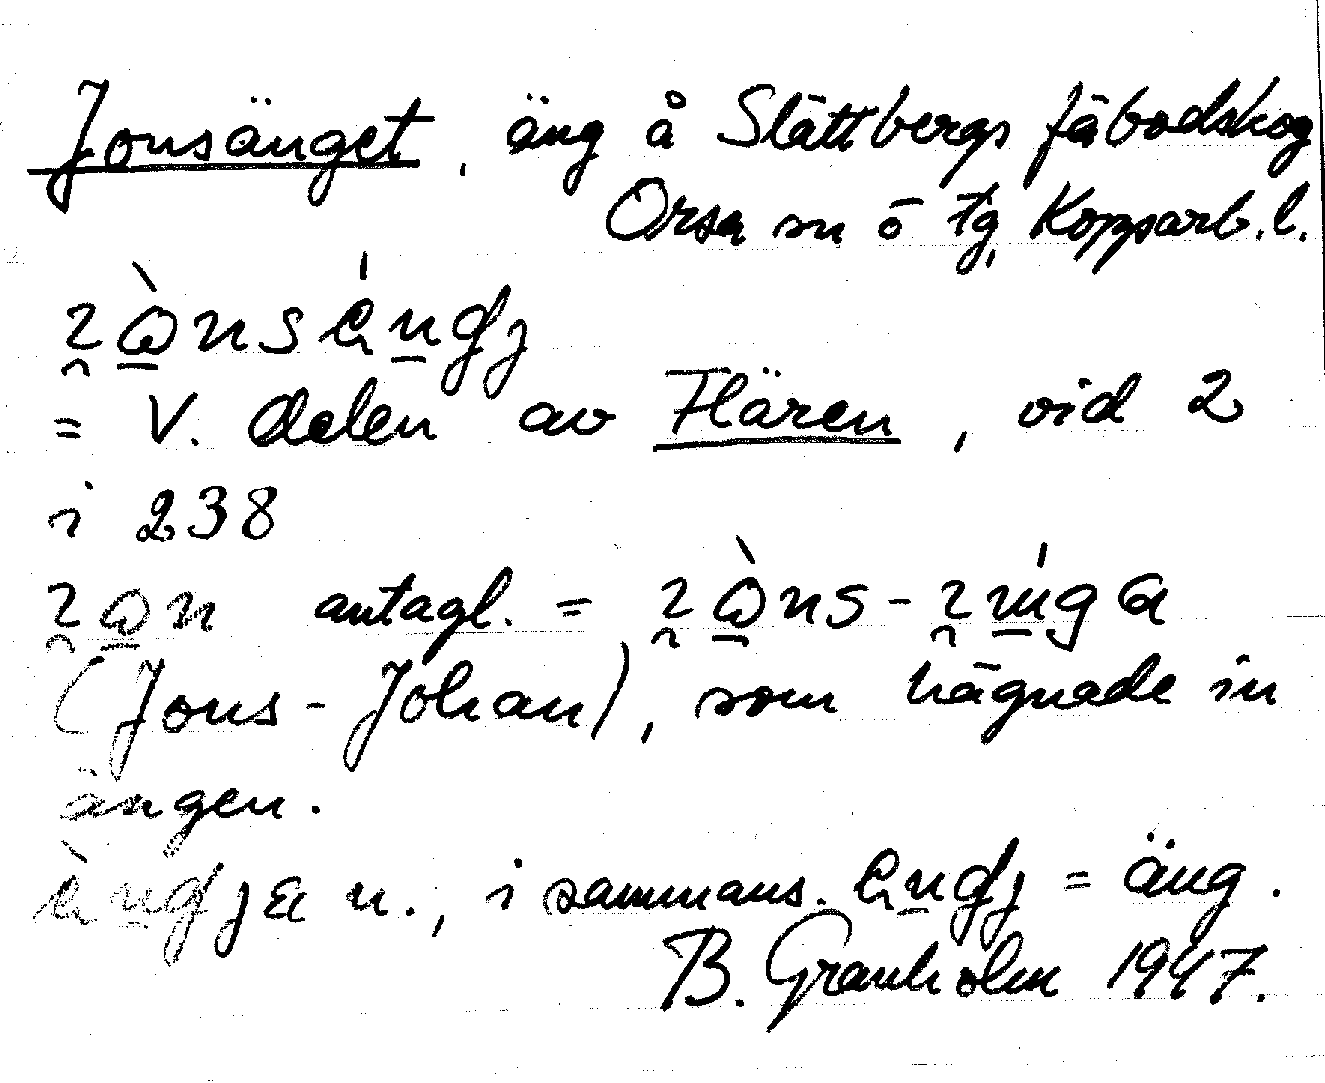 Jonsänget, äng å Slättbergs fäbodskog
Orsa sn ö fg, Kopparb. l.
= V. delen av Flären, vid 2
i 238
antagl. =
(Jons-Johan), som hägnade in
ängen.
n., i sammans. = äng.
B. Granholm 1947.